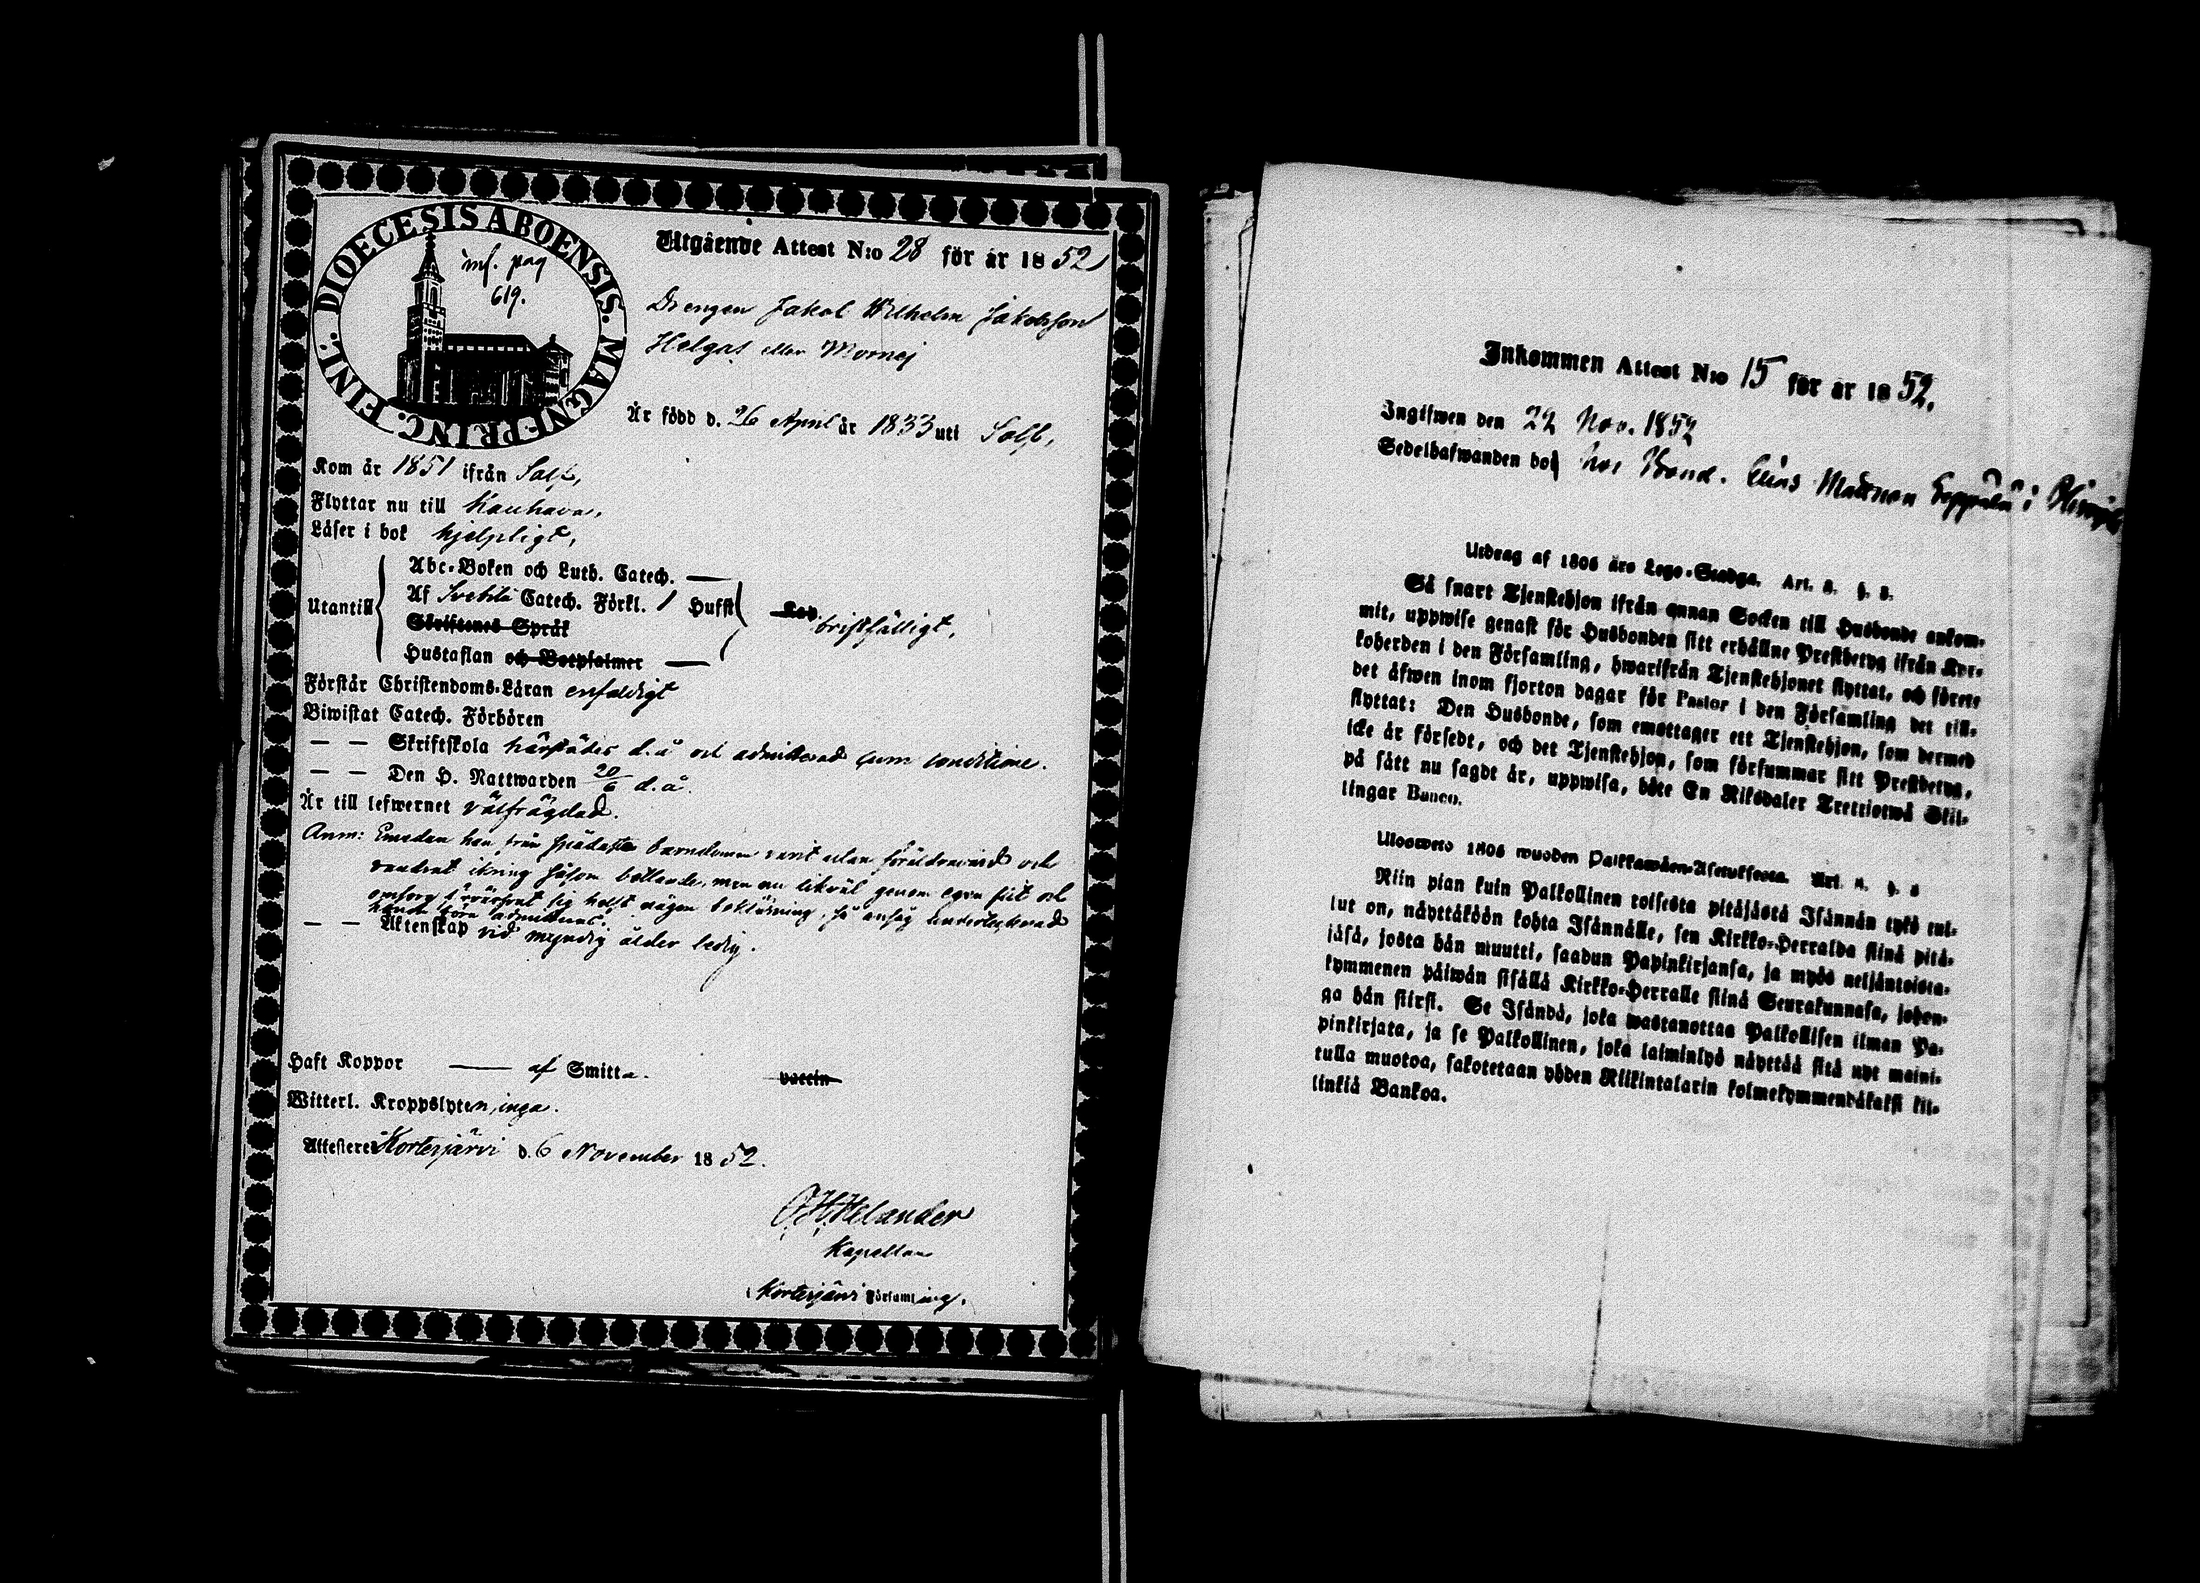 DIOECESIS ABOENSIS. MAGNI PRINC. FINL.
inf. pag
619.
Utgående Attest N:o 28 för år 1852
Drengen Jakob Wilhelm Jakobsson
Helgas eller
Är född d. 26 April år 1833 uti Solf,
Kom år 1851 ifrån Solf,
Flyttar nu till Kauhava,
Läser i bok hjelpligt,
Abc-Boken och Luth. Catech. —
Utantill Af Svebilii Catech. Förkl. 1 Hufst bristfälligt,
Skriftenes Språk
Hustaflan och Botpsalmer —
Förstår Christendoms-Läran enfaldigt
Biwistat Catech. Förhören
— — Skriftskola härstädes d.å och admitterad cum conditione.
— — Den H. Nattwarden 20/6 d.å.
Är till lefwernet välfrägdad.
Anm: Emedan han från spädaste barndomen varit utan föräldravård och
vandrat ikring såsom bettlande, men nu likväl genom egen flit och
omsorg förvärfvat sig helst någon boklärning, så ansåg undertecknad
honom böra admitteras.
— — Äktenskap vid myndig ålder ledig.
Haft Koppor — af Smitta. vaccin
Witterl. Kroppslyten, inga.
Attesterer Kortesjärvi d. 6 November 1852.
Helander
Kapellan
i Kortesjärvi Församling.
Inkommen Attest N:o 15 för år 1852.
Ingifwen den 22 Nov. 1852
Sedelhafwanden bor hos Bond. Elias Mattsson i
Utdrag af 1805 års Lego-Stadga. Art. 2. §. 2.
Så snart Tjenstehjon ifrån annan Socken till Husbonde ankom-
mit, uppwise genast för Husbonden sitt erhållne Prestbetyg ifrån Kyr-
koherden i den Församling, hwarifrån Tjenstehjonet flyttat, och förete
det äfwen inom fjorton dagar för Pastor i den Församling det till-
flyttat: Den Husbonde, som emottager ett Tjenstehjon, som dermed
icke är försedt, och det Tjenstehjon, som försummar sitt Prestbetyg,
på sätt nu sagdt är, uppwisa, böte En Riksdaler Trettiotwå Skil-
lingar Banco.
Ulosweto 1805 wuoden Palkkawäen-Asetuksesta. Art. 2. §. 2
Niin pian kuin Palkollinen toisesta pitäjästä Isännän tykö tul-
lut on, näyttäköön kohta Isännälle, sen Kirkko-Herralda siinä pitä-
jäsä, josta hän muutti, saadun Papinkirjansa, ja myös neljäntoista-
kymmenen päiwän sisällä Kirkko-Herralle siinä Seurakunnasa, johon-
ga hän siirsi. Se Isändä, joka wastanottaa Palkollisen ilman Pa-
pinkirjata, ja se Palkollinen, joka laiminlyö näyttää sitä nyt maini-
tulla muotoa, sakotetaan yhden Riikintalarin kolmekymmendäkaksi kil-
linkiä Bankoa.